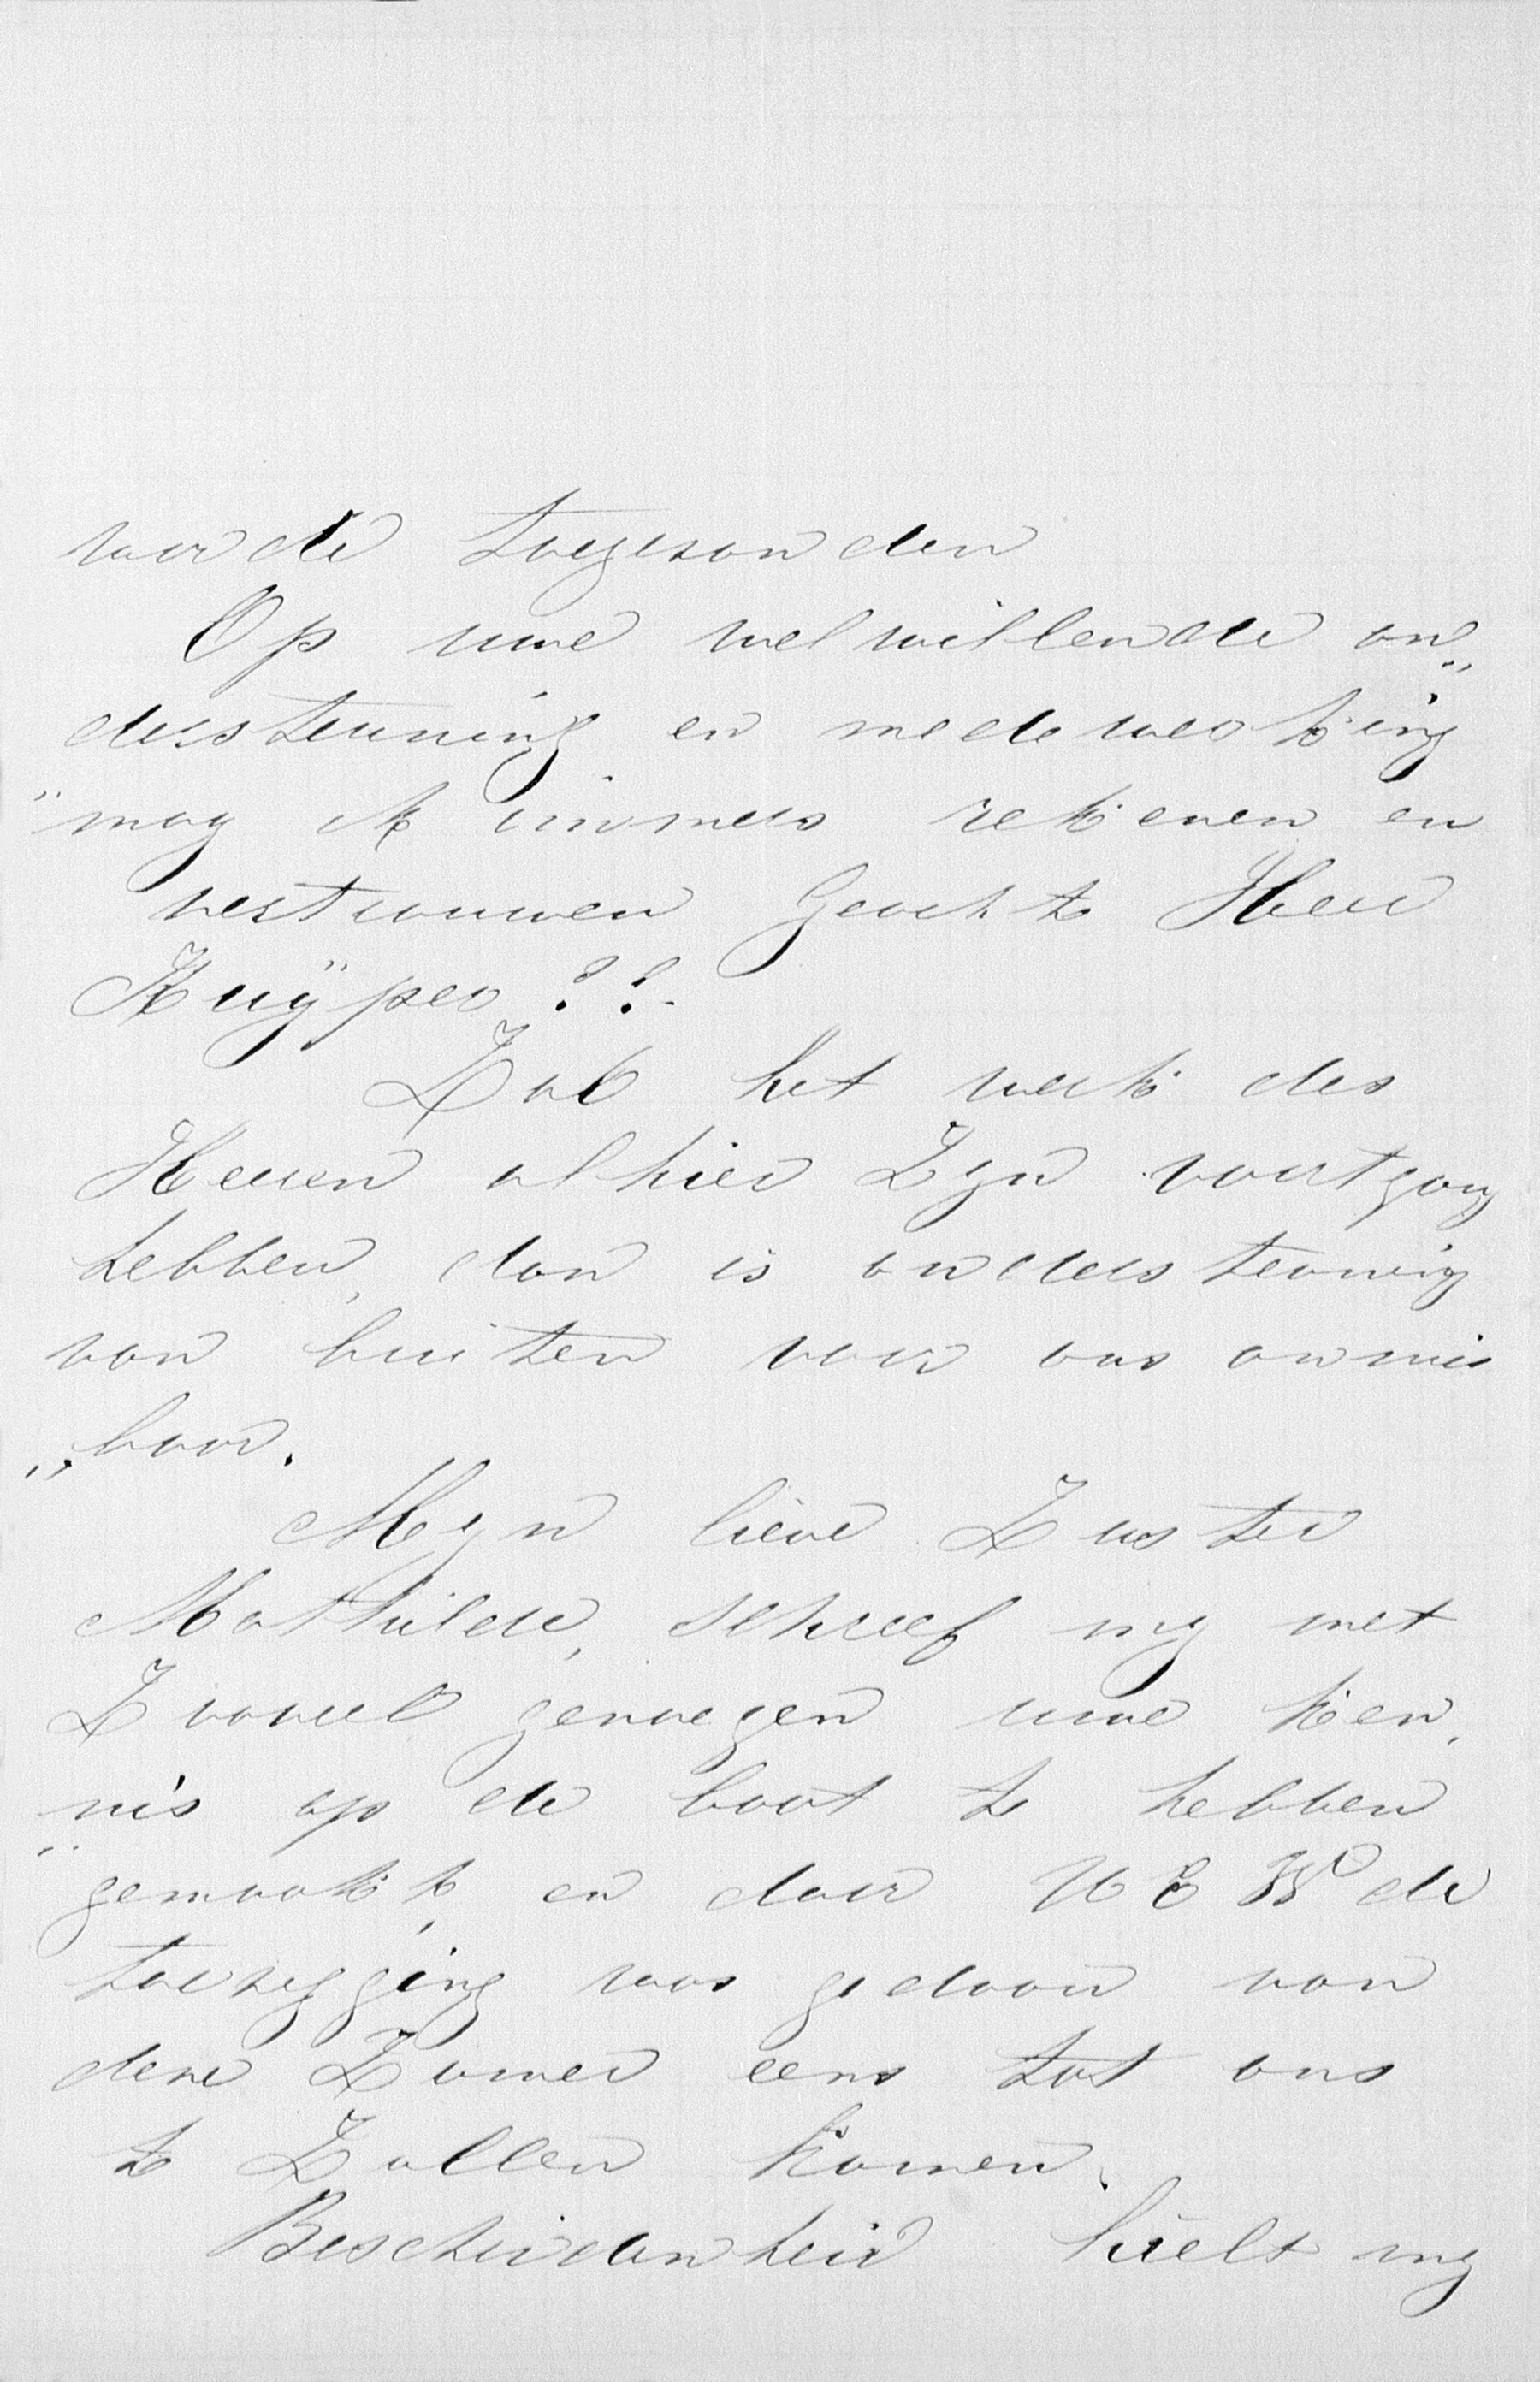 worde toegesonden
Op uwe welwillende on„
dersteuning en medewerking
„mag ik immers rekenen en
vertrouwen Geachte Heer
Kuÿper??
Zal het werk des
Heeren alhier Zyn voortgang
hebben, dan is ondersteuning
van buiten voor ons onmis
„baar.
Myn lieve Zuster
Mathilde, schreef my met
Zooveel genoegen uwe ken„
„nis op de boot te hebben
gemaakt, en door UEW de
toezegging was gedaan van
deze Zomer eens tot ons
te Zullen komen.
Bescheidenheid hielt my